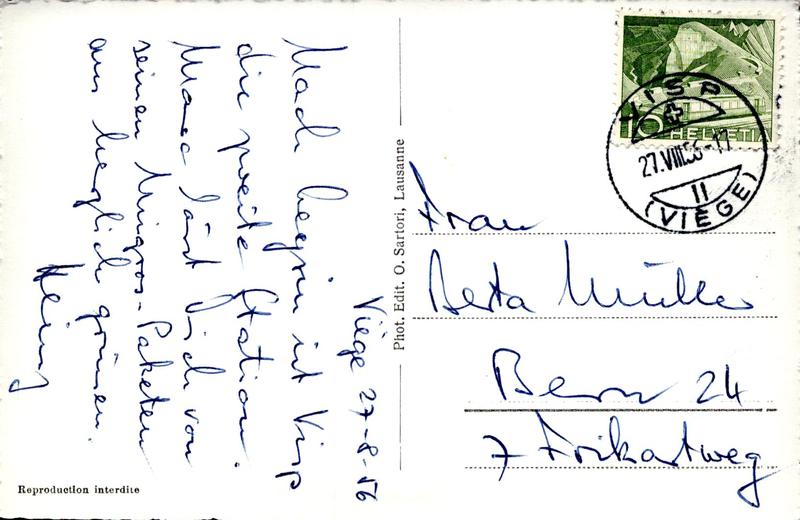 Viège 27-8-56
Nach ist Visp
die zweite Station.
lässt Dich von
seinen Mingros-Paketen
aus herzlich grüssen.
Heinz
Phot. Edit. O. Sartori, Lausanne
Reproduction interdite
10 HELVETIA
VISP
27.VIII.56-17
II
(VIÈGE)
Frau
Berta Müller
Bern 24
7 Frikartweg